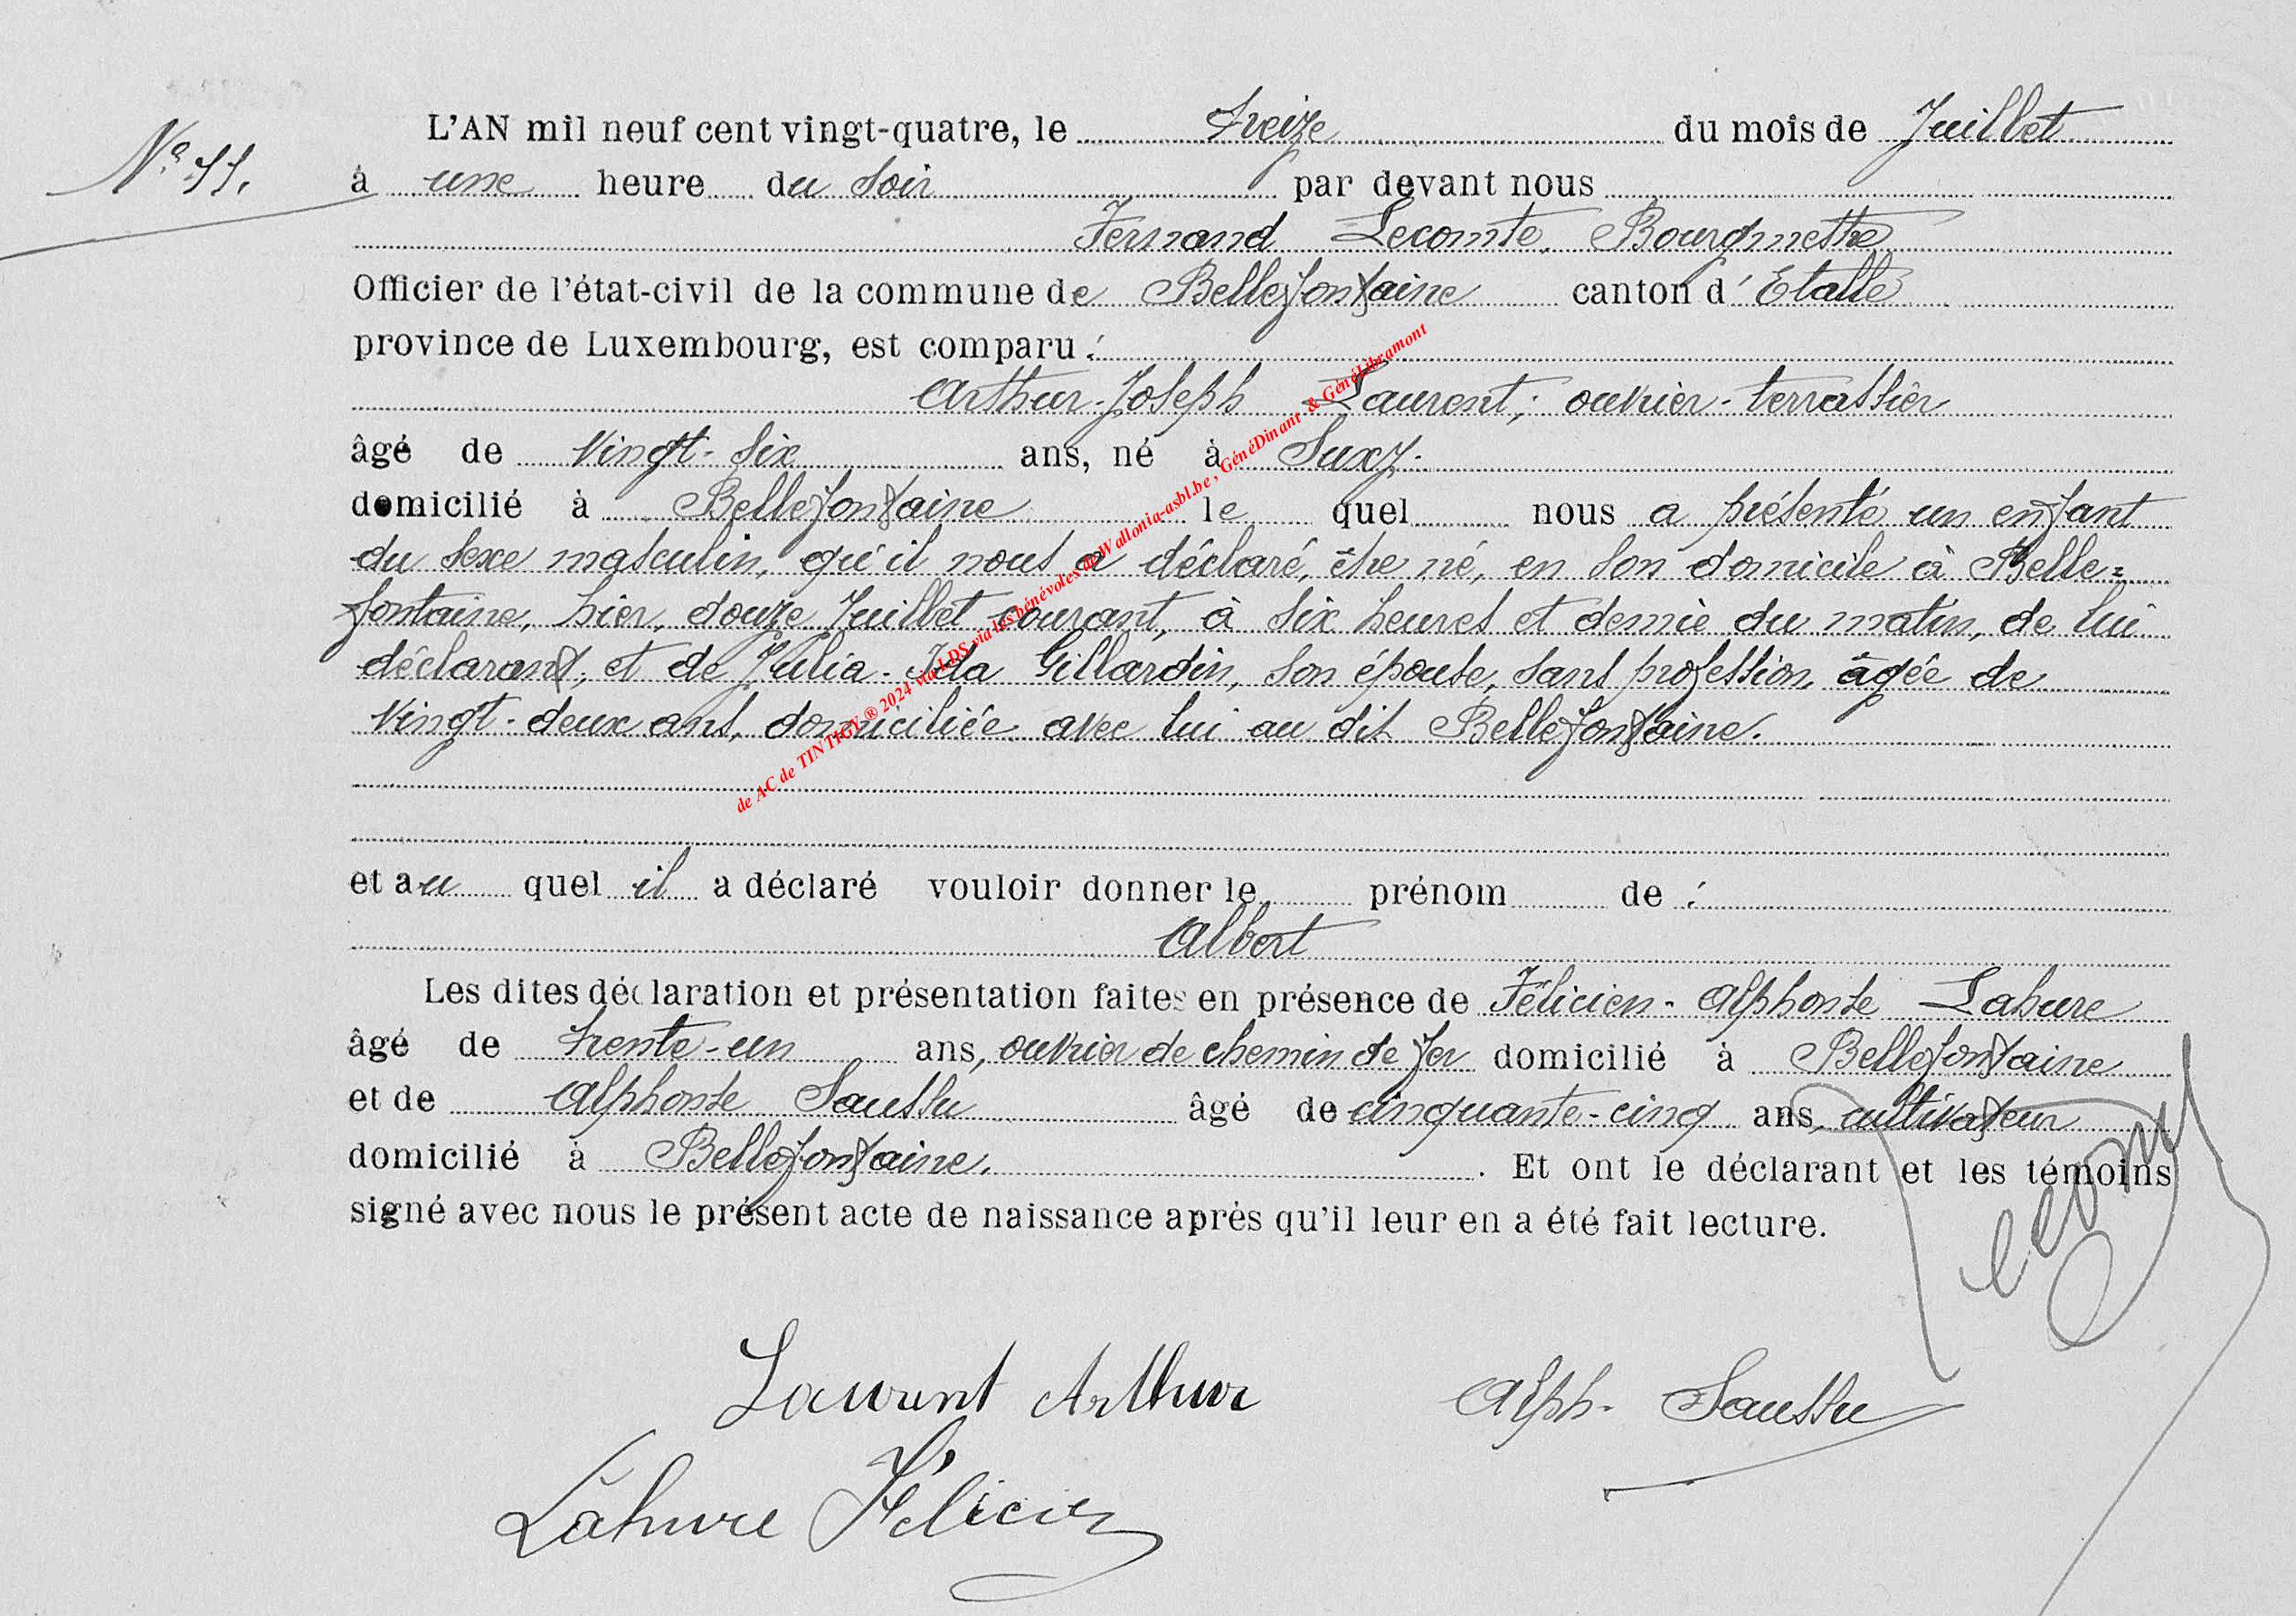 N° 11.
L'AN mil neuf cent vingt-quatre, le treize du mois de Juillet
à une heure du soir par devant nous
Fernand Lecomte, Bourgmettre
Officier de l'état-civil de la commune de Bellefontaine canton d'Etalle
province de Luxembourg, est comparu :
Arthur-Joseph Laurent, ouvrier-terrassier
âgé de vingt-six ans, né à Suxy.
domicilié à Bellefontaine le quel nous a présenté un enfant
du sexe masculin, qu'il nous a déclaré, être né, en son domicile à Belle=
fontaine, hier, douze Juillet courant, à six heures et demie du matin, de lui
déclarant, et de Julia-Ida Gillardin, son épouse, sans profession, âgée de
vingt-deux ans, domiciliée avec lui au dit Bellefontaine.
et au quel il a déclaré vouloir donner le prénom de :
Albert
Les dites déclaration et présentation faites en présence de Félicien-Alphonse Lahure
âgé de trente-un ans, ouvrier de chemin de fer domicilié à Bellefontaine
et de Alphonse Saussu âgé de cinquante-cinq ans, cultivateur
domicilié à Bellefontaine. Et ont le déclarant et les témoins
signé avec nous le présent acte de naissance après qu'il leur en a été fait lecture.
Laurent Arthur Alph. Saussu
Lahure Félicien
de AC de TINTIGY ® 2024 via LDS via les bénévoles de Wallonia-asbl.be , GénéDinant & GénéLibramont